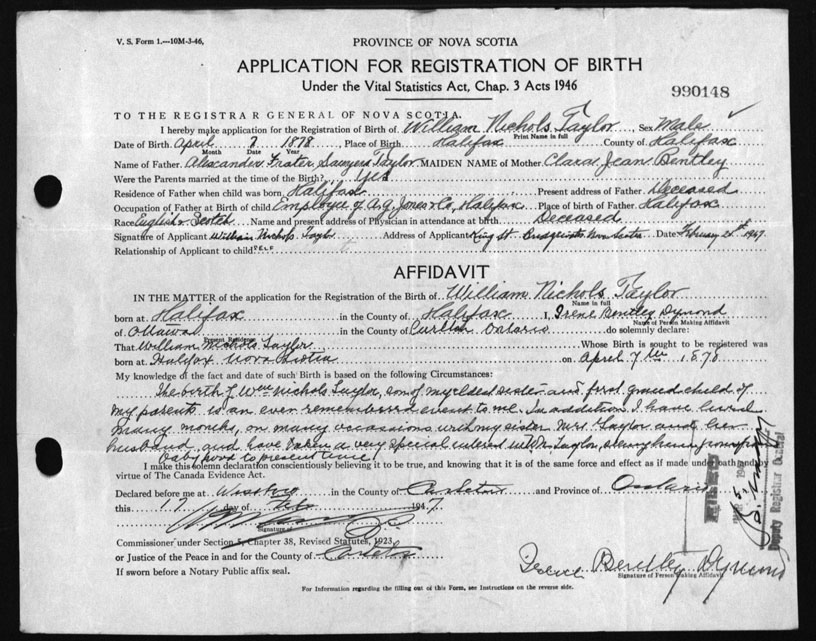 V. S. Form 1.—10M-3-46,
PROVINCE OF NOVA SCOTIA
APPLICATION FOR REGISTRATION OF BIRTH
Under the Vital Statistics Act, Chap. 3 Acts 1946
990148
TO THE REGISTRAR GENERAL OF NOVA SCOTIA.
I hereby make application for the Registration of Birth of William Nichols Taylor, Sex Male
Print Name in full
Date of Birth April 7 1878 Place of Birth Halifax County of Halifax
Month Date Year
Name of Father Alexander Frater Sawyers Taylor MAIDEN NAME of Mother Clara Jean Bentley
Were the Parents married at the time of the Birth? Yes
Residence of Father when child was born Halifax Present address of Father Deceased
Occupation of Father at Birth of child Employee of A.G. Jones & Co, Halifax Place of Birth of Father Halifax
Race English & Scotch Name and present address of Physician in attendance at birth Deceased
Signature of Applicant William Nichols Taylor Address of Applicant King St. Nova Scotia Date February 1947
Relationship of Applicant to child SELF
AFFIDAVIT
IN THE MATTER of the application for the Registration of Birth of William Nichols Taylor
Name in full
born at Halifax in the County of Halifax I, Irene Bentley Dymond
Name of Person Making Affidavit
of Ottawa in the County of Ontario do solemnly declare:
Present Residence
That William Nichols Taylor Whose Birth is sought to be registered was
born at Halifax Nova Scotia on April 7th 1878
My knowledge of the fact and date of such Birth is based on the following Circumstances:
The birth of Wm Nichols Taylor, son of my eldest sister and first grand child of
my parents is an ever remembered event to me. In addition I have lived
many months, on many occassions with my sister Mrs Taylor and her
husband, and have taken a very special interest in Taylor, from
baby hood to present time.
I make this solemn declaration conscientiously believing it to be true, and knowing that it is of the same force and effect as if made under oath and by
virtue of The Canada Evidence Act.
Declared before me at in the County of Carleton and Province of Ontario
this 17 day of Feb 1947.
Signature of
Commissioner under Section 5, Chapter 38, Revised Statutes, 1923
or Justice of the Peace in and for the County of Carleton
If sworn before a Notary Public affix seal.
Irene Bentley Dymond
Signature of Person Making Affidavit
For Information regarding the filling out of this Form, see Instructions on the reverse side.
Deputy Registrar General